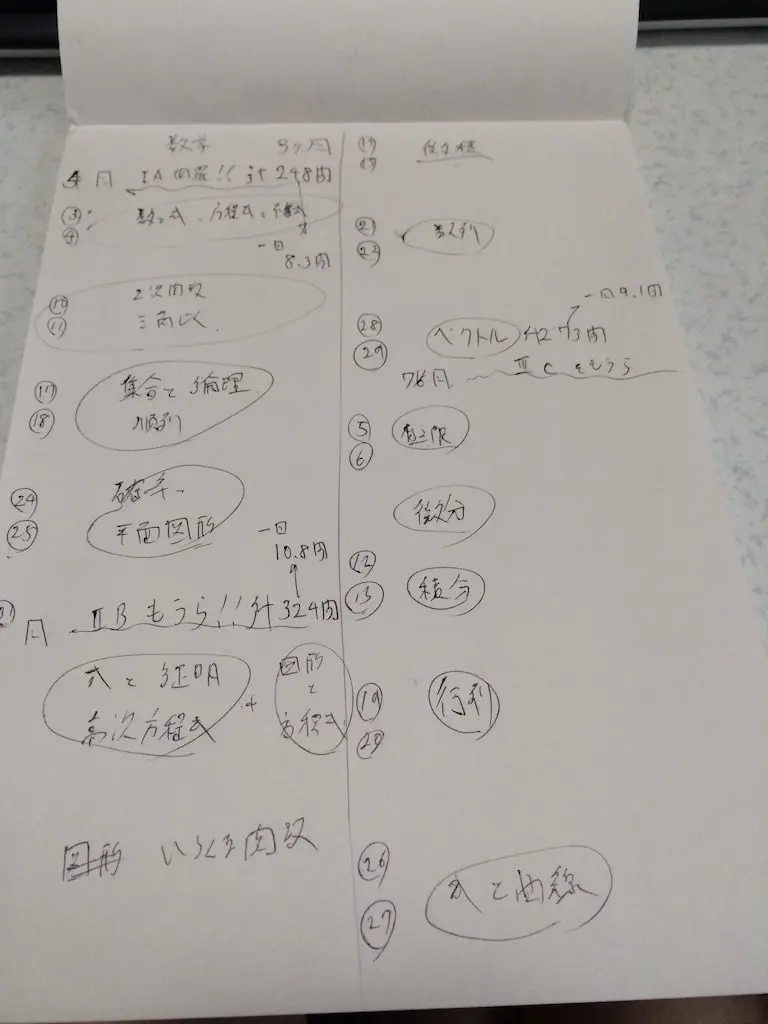 数学 3ヶ月
月 IA 網羅!! 計248問
③
④ 数と式、方程式と不等式
一日
8.3問
⑩ 2次関数
⑪ 三角比
⑰ 集合と論理
⑱ 順列
㉔ 確率
㉕ 平面図形
一日
10.8問
月 ⅡB もうら!! 計324問
式と証明
高次方程式
+
図形
と
方程式
いろいろな関数
微分積
㉑ 数列
㉒
一日9.1問
㉘ ベクトル
㉙ 273問
月 ⅢCをもうら
⑤ 極限
⑥
微分
⑫
⑬ 積分
⑲ 行列
⑳
㉖ 式と曲線
㉗